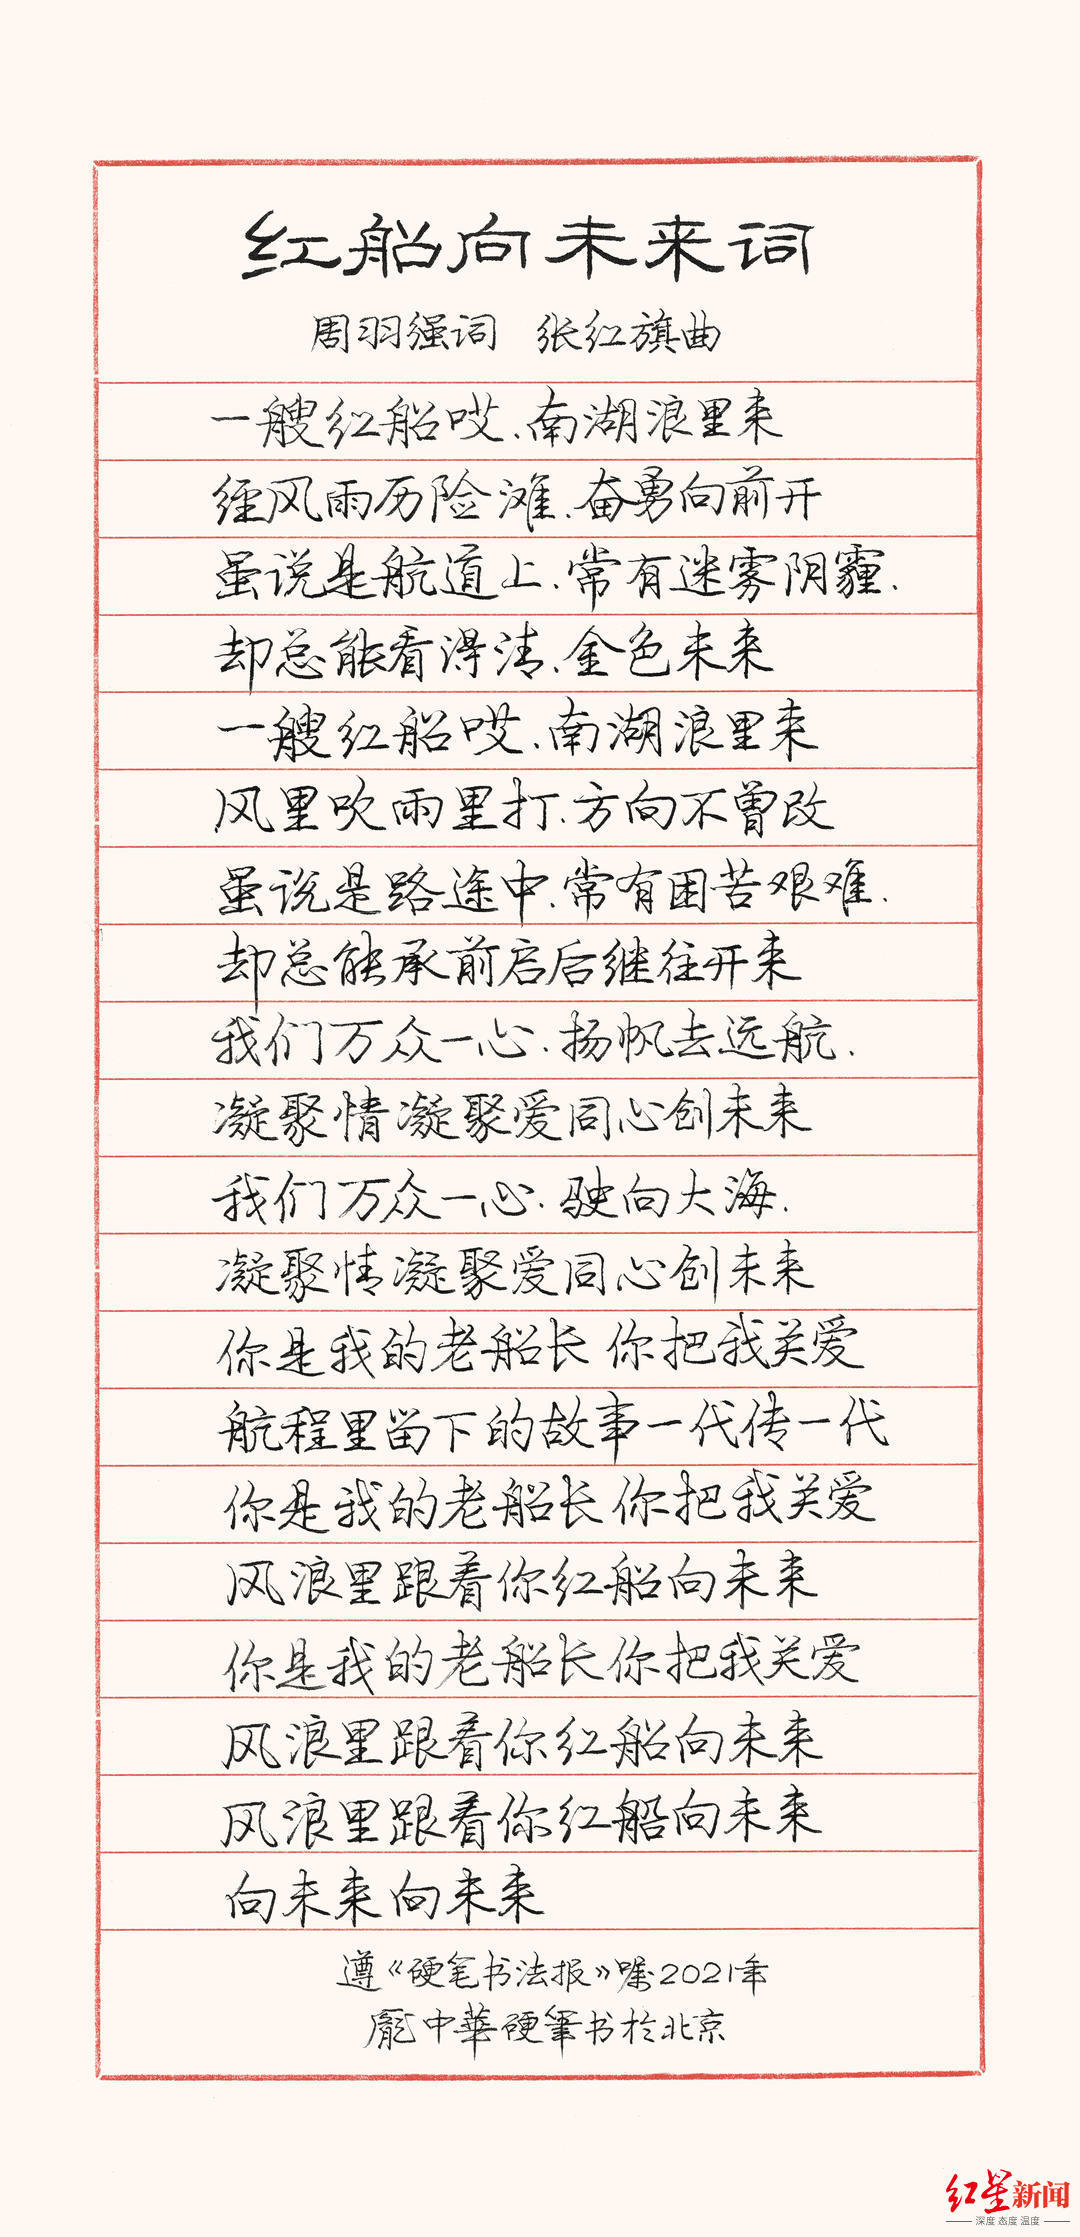 红船向未来词
周羽强词 张红旗曲
一艘红船哎、南湖浪里来
经风雨历险滩、奋勇向前开
虽说是航道上、常有迷雾阴霾、
却总能看得清、金色未来
一艘红船哎、南湖浪里来
风里吹雨里打、方向不曾改
虽说是路途中、常有困苦艰难、
却总能承前启后继往开来
我们万众一心、扬帆去远航、
凝聚情凝聚爱同心创未来
我们万众一心、驶向大海、
凝聚情凝聚爱同心创未来
你是我的老船长 你把我关爱
航程里留下的故事一代传一代
你是我的老船长 你把我关爱
风浪里跟着你红船向未来
你是我的老船长你把我关爱
风浪里跟着你红船向未来
风浪里跟着你红船向未来
向未来 向未来
遵《硬笔书法报》嘱2021年
龐中華硬筆书於北京
红星新闻
深度 态度 温度